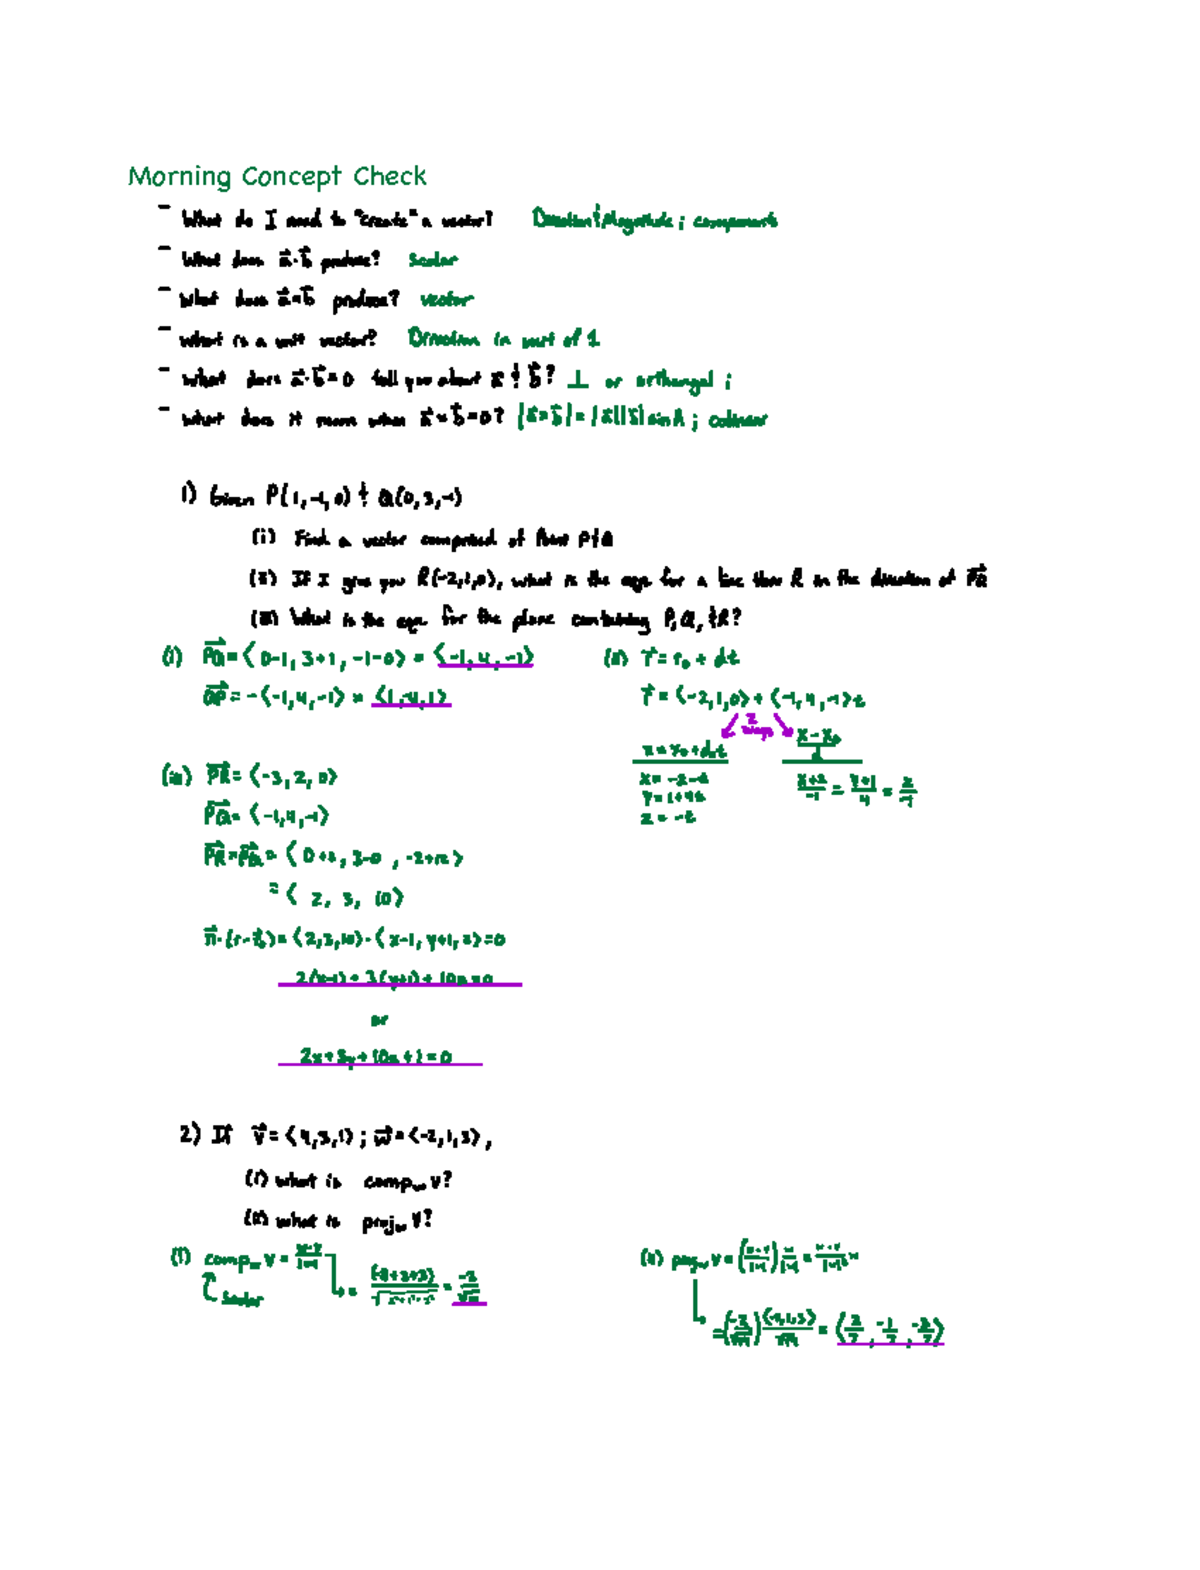 Morning Concept Check
- What do I need to "create" a vector? Direction & Magnitude ; components
- What does a⃗·b⃗ produce? Scalar
- What does a⃗×b⃗ produce? vector
- What is a unit vector? Direction in unit of 1
- What does a⃗·b⃗=0 tell you about a⃗ & b⃗? ⊥ or orthongal ;
- What does it mean when a⃗×b⃗=0? |a⃗×b⃗|=|a⃗||b⃗|sinA ; colinear
1) Given P(1,-1,0) & Q(0,3,-1)
(i) Find a vector comprised of P & Q
(ii) If I give you R(-2,1,0), what is the eqn for a line thru R in the direction of PQ⃗
(iii) What is the eqn for the plane containing P,Q, & R?
(i) PQ⃗ = <0-1, 3+1, -1-0> = <-1,4,-1>
QP⃗ = -<-1,4,-1> = <1,-4,1>
(ii) r⃗ = r₀ + dt
r⃗ = <-2,1,0> + <-1,4,-1>t
2 ways
x = x₀ + dₓt
x = -2-t
y = 1+4t
z = -t
x-x₀ / d
x+2/-1 = y+1/4 = z/-1
(iii) PR⃗ = <-3,2,0>
PQ⃗ = <-1,4,-1>
PR⃗×PQ⃗ = <0+2, 3-0, -2+12>
= <2, 3, 10>
n⃗·(r-r₀) = <2,3,10>·<x-1, y+1, z> = 0
2(x-1) + 3(y+1) + 10z = 0
or
2x+3y+10z+1=0
2) If v⃗ = <4,3,1> ; w⃗ = <-2,1,3>,
(i) what is comp_w v?
(ii) what is proj_w v?
(i) comp_w v = w·v/|w|
Scalar
= (-8+3+3)/√ = -2/√14
(ii) proj_w v = (w·v/|w|) w/|w| = w·v/|w|² w
= (-2/√14) <-2,1,3>/√14 = <2/7, -1/7, -3/7>